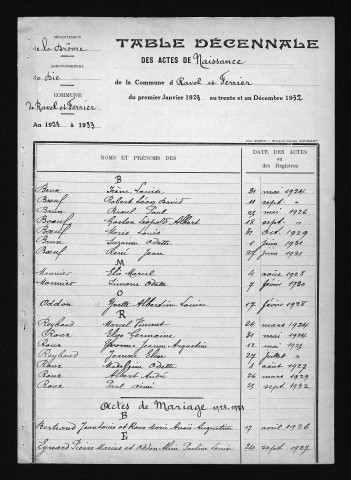 DÉPARTEMENT
de la Drôme
ARRONDISSEMENT
de Die
COMMUNE
de Ravel et Ferrier
An 1923 à 1933
TABLE DÉCENNALE
DES ACTES DE Naissance
de la Commune d Ravel et Ferrier
du premier Janvier 1923 au trente et un Décembre 1932
NOMS ET PRÉNOMS DES
DATE DES ACTES
ou
des Registres
B
Brun Louise 31 mai 1924
Boeuf Robert Léon David 11 sept "
Brun Raoul Paul mai 1926
Boeuf Gaston Léopold Albert 18 sept "
Boeuf Louis 31 Oct 1929
Brun Suzanne Odette 1 juin 1931
Boeuf René Jean 27 juin 1931
M
Monnier Elie Marcel 4 août 1928
Monnier Simone Odette 7 février 1930
O
Oddon Yvette Albertine Louise 17 février 1928
R
Reybaud Marcel Vincent 26 mars 1924
Roux Germaine 31 mai 1924
Roux Yvonne Jeanne Augustine 12 mai 1925
Reybaud Jeanne Elise 27 juillet "
Roux Madeleine Odette 3 août 1927
Roux Albert André 26 mars 1929
Roux Paul 25 sept 1932
Actes de Mariage 1923-1933
B
Bertrand Jean Louis et Roux Marie Anaïs Augustine 17 avril 1926
E
Eymard Pierre Marius et Oddon Pauline Louise 24 sept 1927